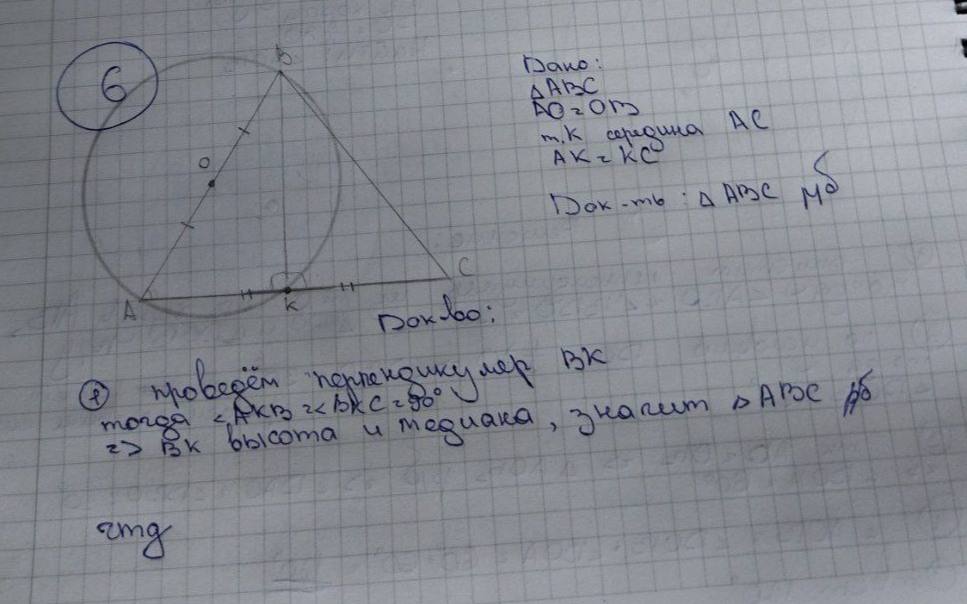 6
B
O
A
K
C
Дано:
△ABC
AO=OB
т.K середина AC
AK=KC
Док-ть: △ABC р/б
Док-во:
① проведём перпендикуляр BK
тогда <AKB=<BKC=90°
=> BK высота и медиана, значит △ABC р/б
чтд